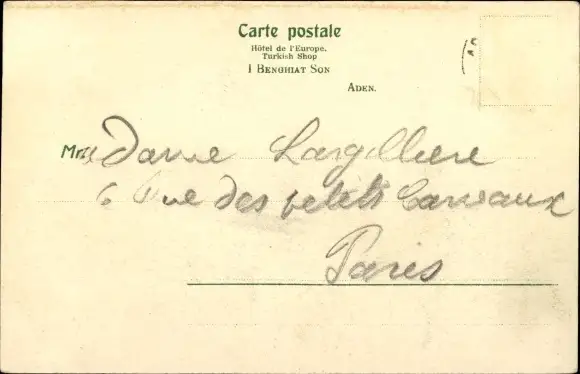 Carte postale
Hôtel de l'Europe.
Turkish Shop
I BENGHIAT SON
ADEN.
Mr Dame Largilliere
6 Rue des petits Carreaux
Paris